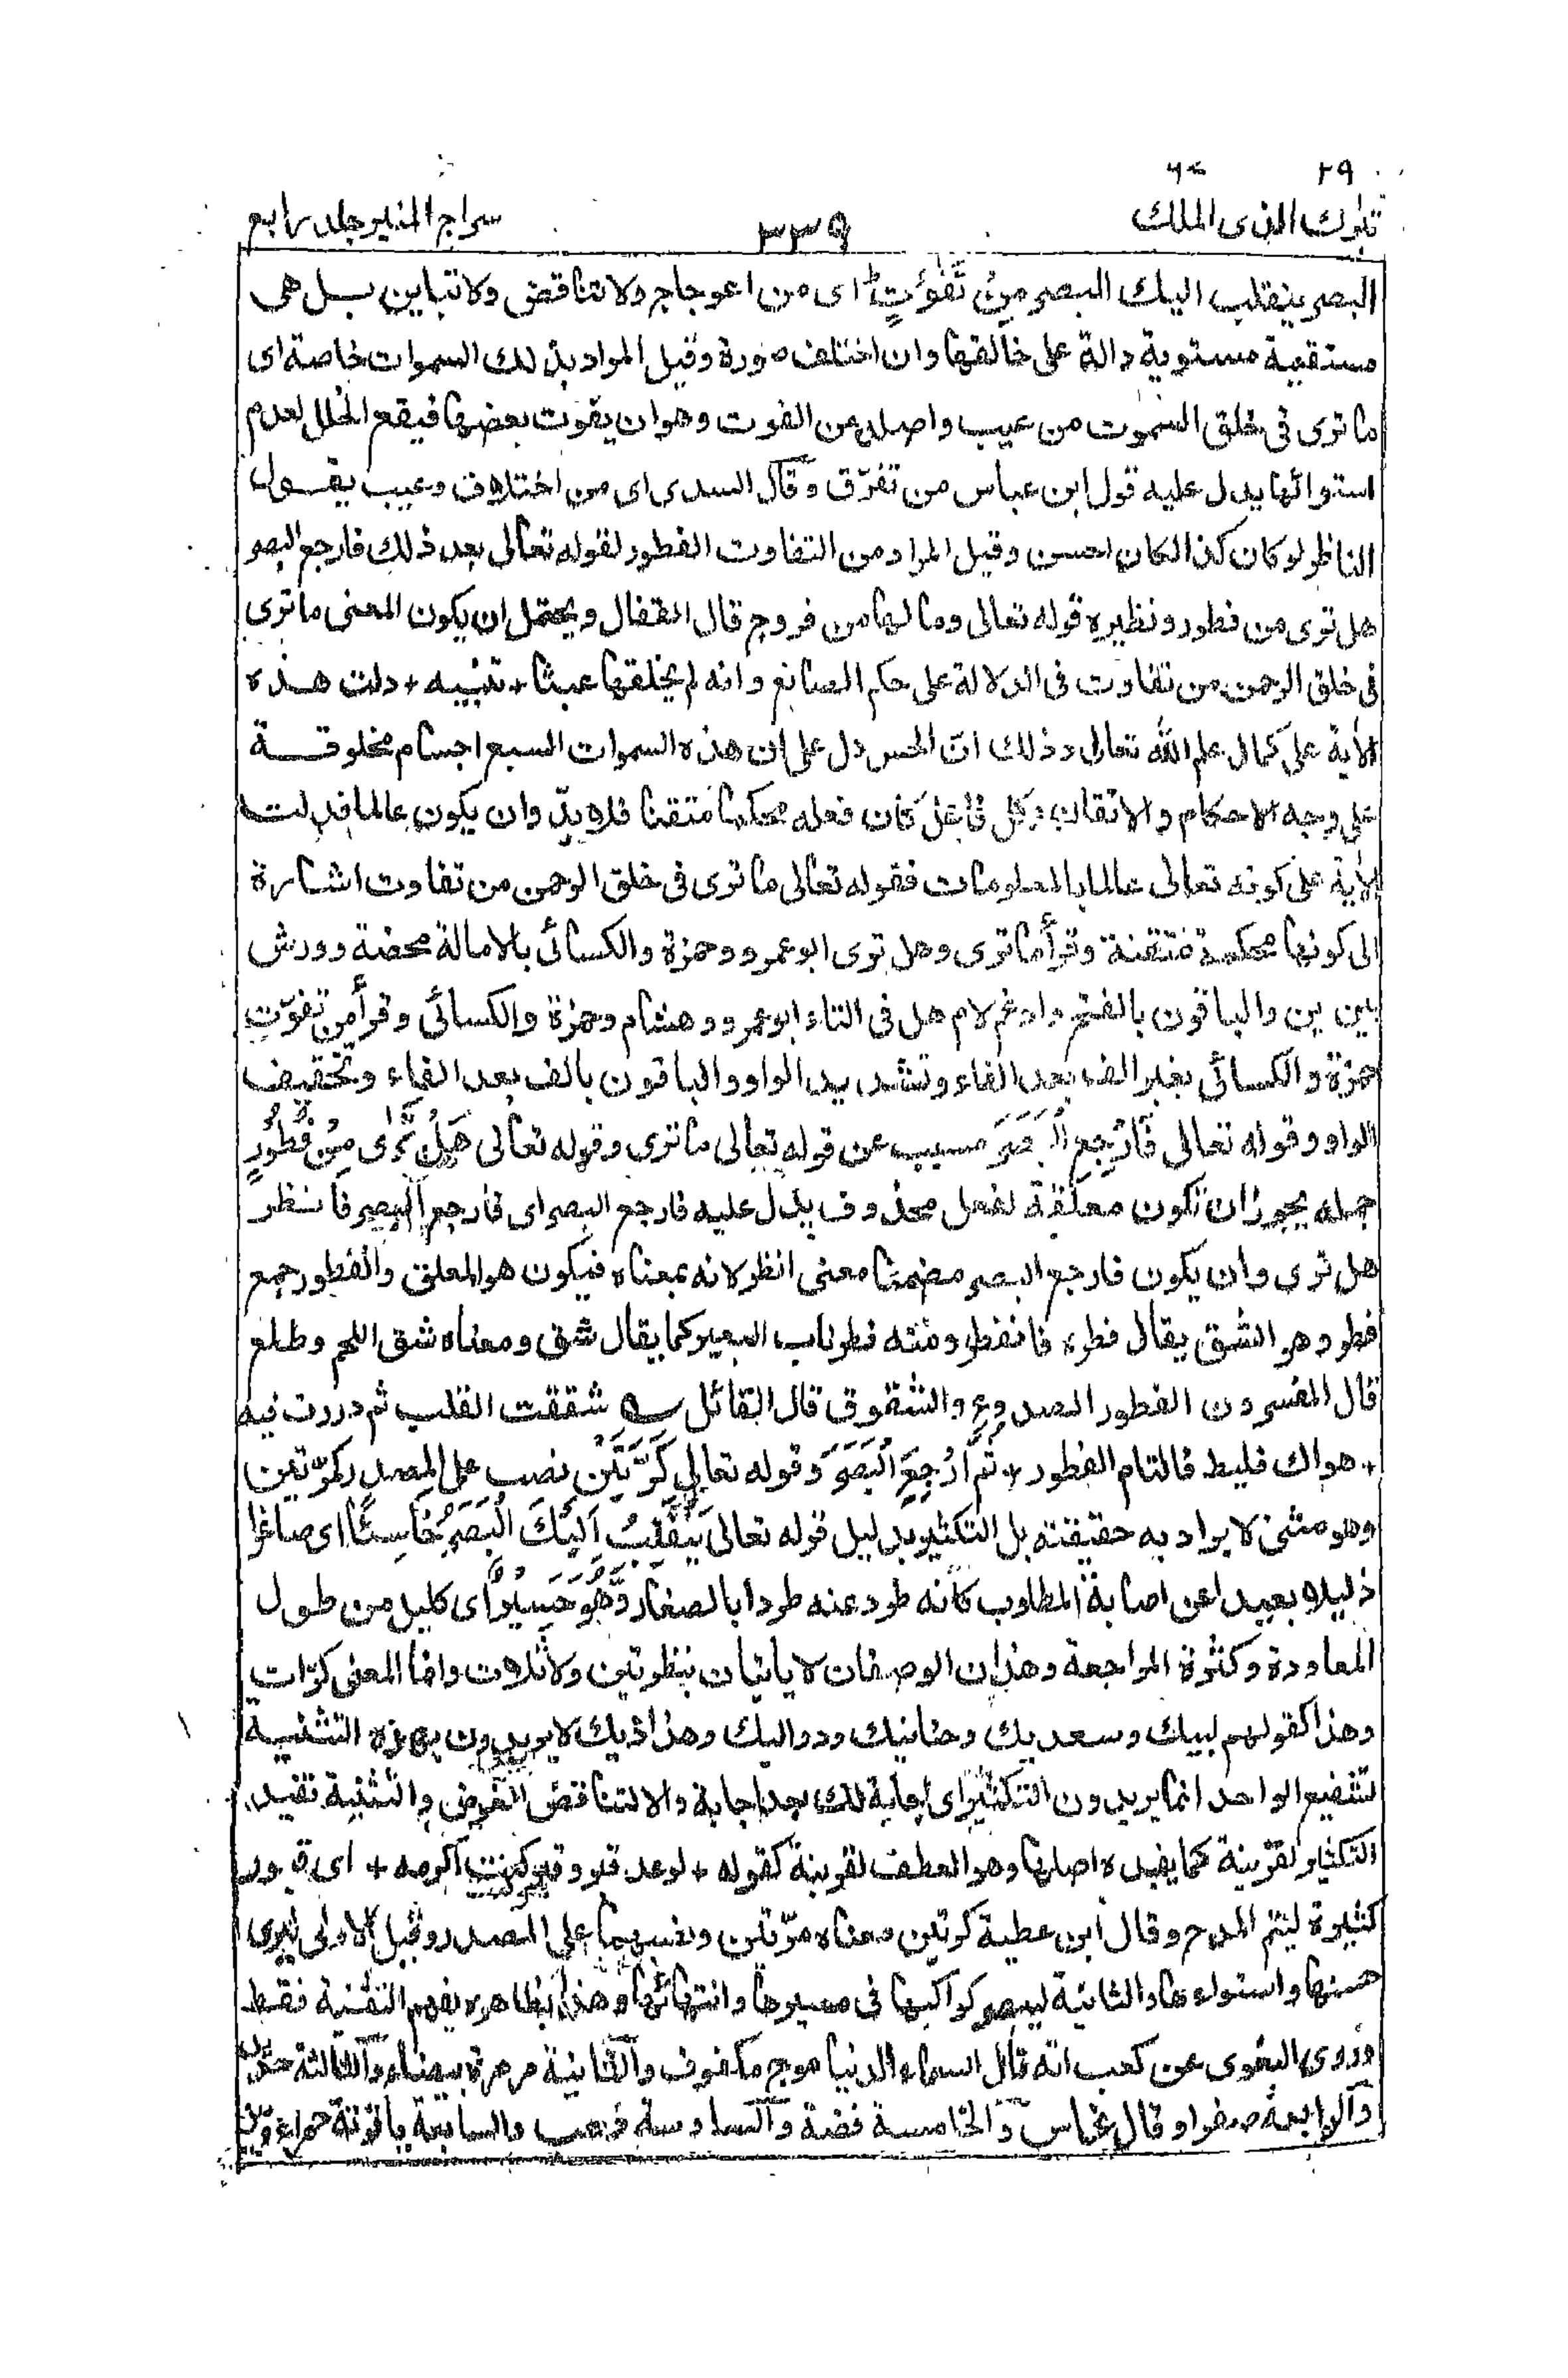 ٢٩ ٦٧
تبٰرك الذى الملك ٣٣٩ سراج المنير جلد رابع
البصر ينقلب اليك البصر مِنْ تَفٰوُتٍ اى من اعوجاج ولا تناقض ولا تباين بل هى
مستقيمة مستوية دالة على خالقها وان اختلفت صورة وقيل المراد بذلك السموات خاصة اى
ما ترى فى خلق السموت من عيب واصله من الفوت وهو ان يفوت بعضها فيقع الخلل لعدم
استوائها يدل عليه قول ابن عباس من تفرّق وقال السدى اى من اختلاف وعيب يقول
الناظر لو كان كذا لكان احسن وقيل المراد من التفاوت الفطور لقوله تعالى بعد ذلك فارجع البصر
هل ترى من فطور ونظيره قوله تعالى وما لها من فروج قال القفال ويحتمل ان يكون المعنى ما ترى
فى خلق الرحمن من تفاوت فى الدلالة على حكم الصانع وانه لم يخلقها عبثا + تنبيه + دلت هذه
الاية على كمال علم الله تعالى وذلك انّ الحس دل على ان هذه السموات السبع اجسام مخلوقة
على وجه الاحكام والاتقان وكل فاعل كان فعله محكما متقنا فلا بدّ وان يكون عالما فدلت
الاية على كونه تعالى عالما بالمعلومات فقوله تعالى ما ترى فى خلق الرحمن من تفاوت اشارة
الى كونها محكمة متقنة وقرأ ما ترى وهل ترى ابو عمرو وحمزة والكسائى بالامالة محضة وورش
بين بين والباقون بالفتح وادغم لام هل فى التاء ابو عمرو وهشام وحمزة والكسائى وقرأ من تفوّتٍ
حمزة والكسائى بغير الف بعد الفاء وتشديد الواو والباقون بالف بعد الفاء وتخفيف
الواو وقوله تعالى فَارْجِعِ الْبَصَرَ مسبب عن قوله تعالى ما ترى وقوله تعالى هَلْ تَرٰى مِنْ فُطُوْرٍ
جملة يجوز ان تكون معلّقة لفعل محذوف يدل عليه فارجع البصر اى فارجع البصر فانظر
هل ترى وان يكون فارجع البصر مضمنا معنى انظر لانه بمعناه فيكون هو المعلق والفطور جمع
فطر وهو الشق يقال فطره فانفطر ومنه فطر ناب البعير كما يقال شق ومعناه شق اللحم وطلع
قال المفسرون الفطور الصدوع والشقوق قال القائل شققت القلب ثم دررت فيه
+ هواك فليط فالتام الفطور + ثُمَّ ارْجِعِ الْبَصَرَ وقوله تعالى كَرَّتَيْنِ نصب على المصدر كمرّتين
وهو مثنى لا يراد به حقيقته بل التكثير بدليل قوله تعالى يَنْقَلِبْ اِلَيْكَ الْبَصَرُ خَاسِئًا اى صاغرا
ذليلا بعيدا عن اصابة المطلوب كانه طرد عنه طردا بالصغار وَّهُوَ حَسِيْرٌ اى كليل من طول
المعاودة وكثرة المراجعة وهذان الوصفان لا ياتيان بنظرتين ولا ثلاث وانما المعنى كرّات
وهذا كقولهم لبيك وسعديك وحنانيك ودواليك وهذاذيك لا يريدون بهذه التثنية
تشفيع الواحد انما يريدون التكثير اى اجابة لك بعد اجابة والا لتناقض الغرض والتثنية تفيد
التكثير لقرينة كما يفيده اصلها وهو العطف لقرينة كقوله + لو عد قبر وقبر كنت اكرمه + اى قبور
كثيرة ليتم المدح وقال ابن عطية كرتين معناه مرّتين ونصبهما على المصدر وقيل الاولى ليرى
حسنها واستواءها والثانية ليبصر كواكبها فى مسيرها وانتهائها وهذا بظاهره يفهم التثنية فقط
وروى البغوى عن كعب انه قال السماء الدنيا موج مكفوف والثانية مرمرة بيضاء والثالثة حديد
والرابعة صفرا وقال نحاس والخامسة فضة والسادسة ذهب والسابعة ياقوتة حمراء وبين